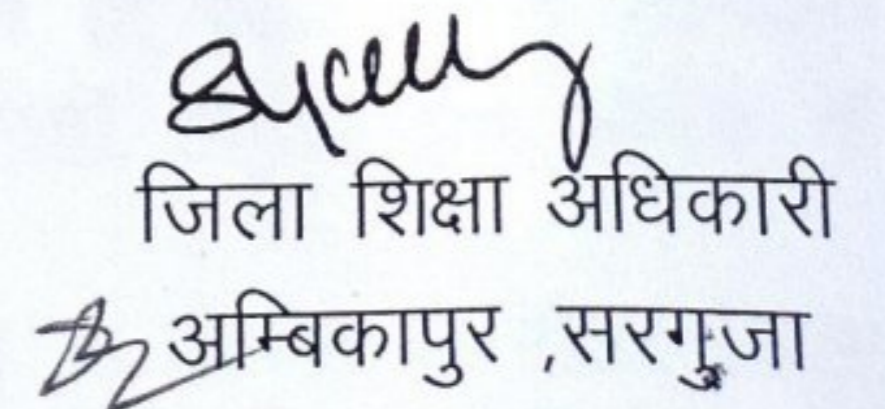 जिला शिक्षा अधिकारी
अम्बिकापुर ,सरगुजा